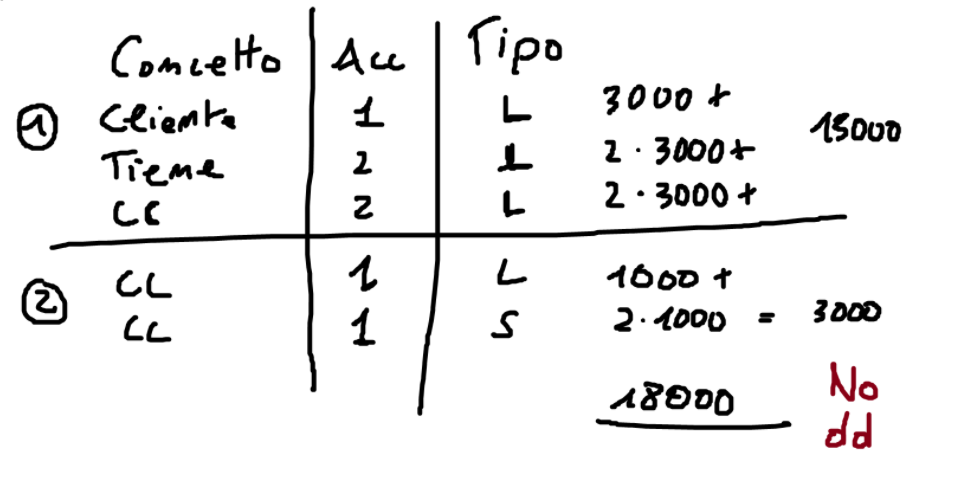 Concetto Acc Tipo
1 Cliente 1 L 3000 + 15000
Tiene 2 L 2 · 3000 +
CC 2 L 2 · 3000 +
2 CL 1 L 1000 +
CC 1 S 2 · 1000 = 3000
18000 No
dd